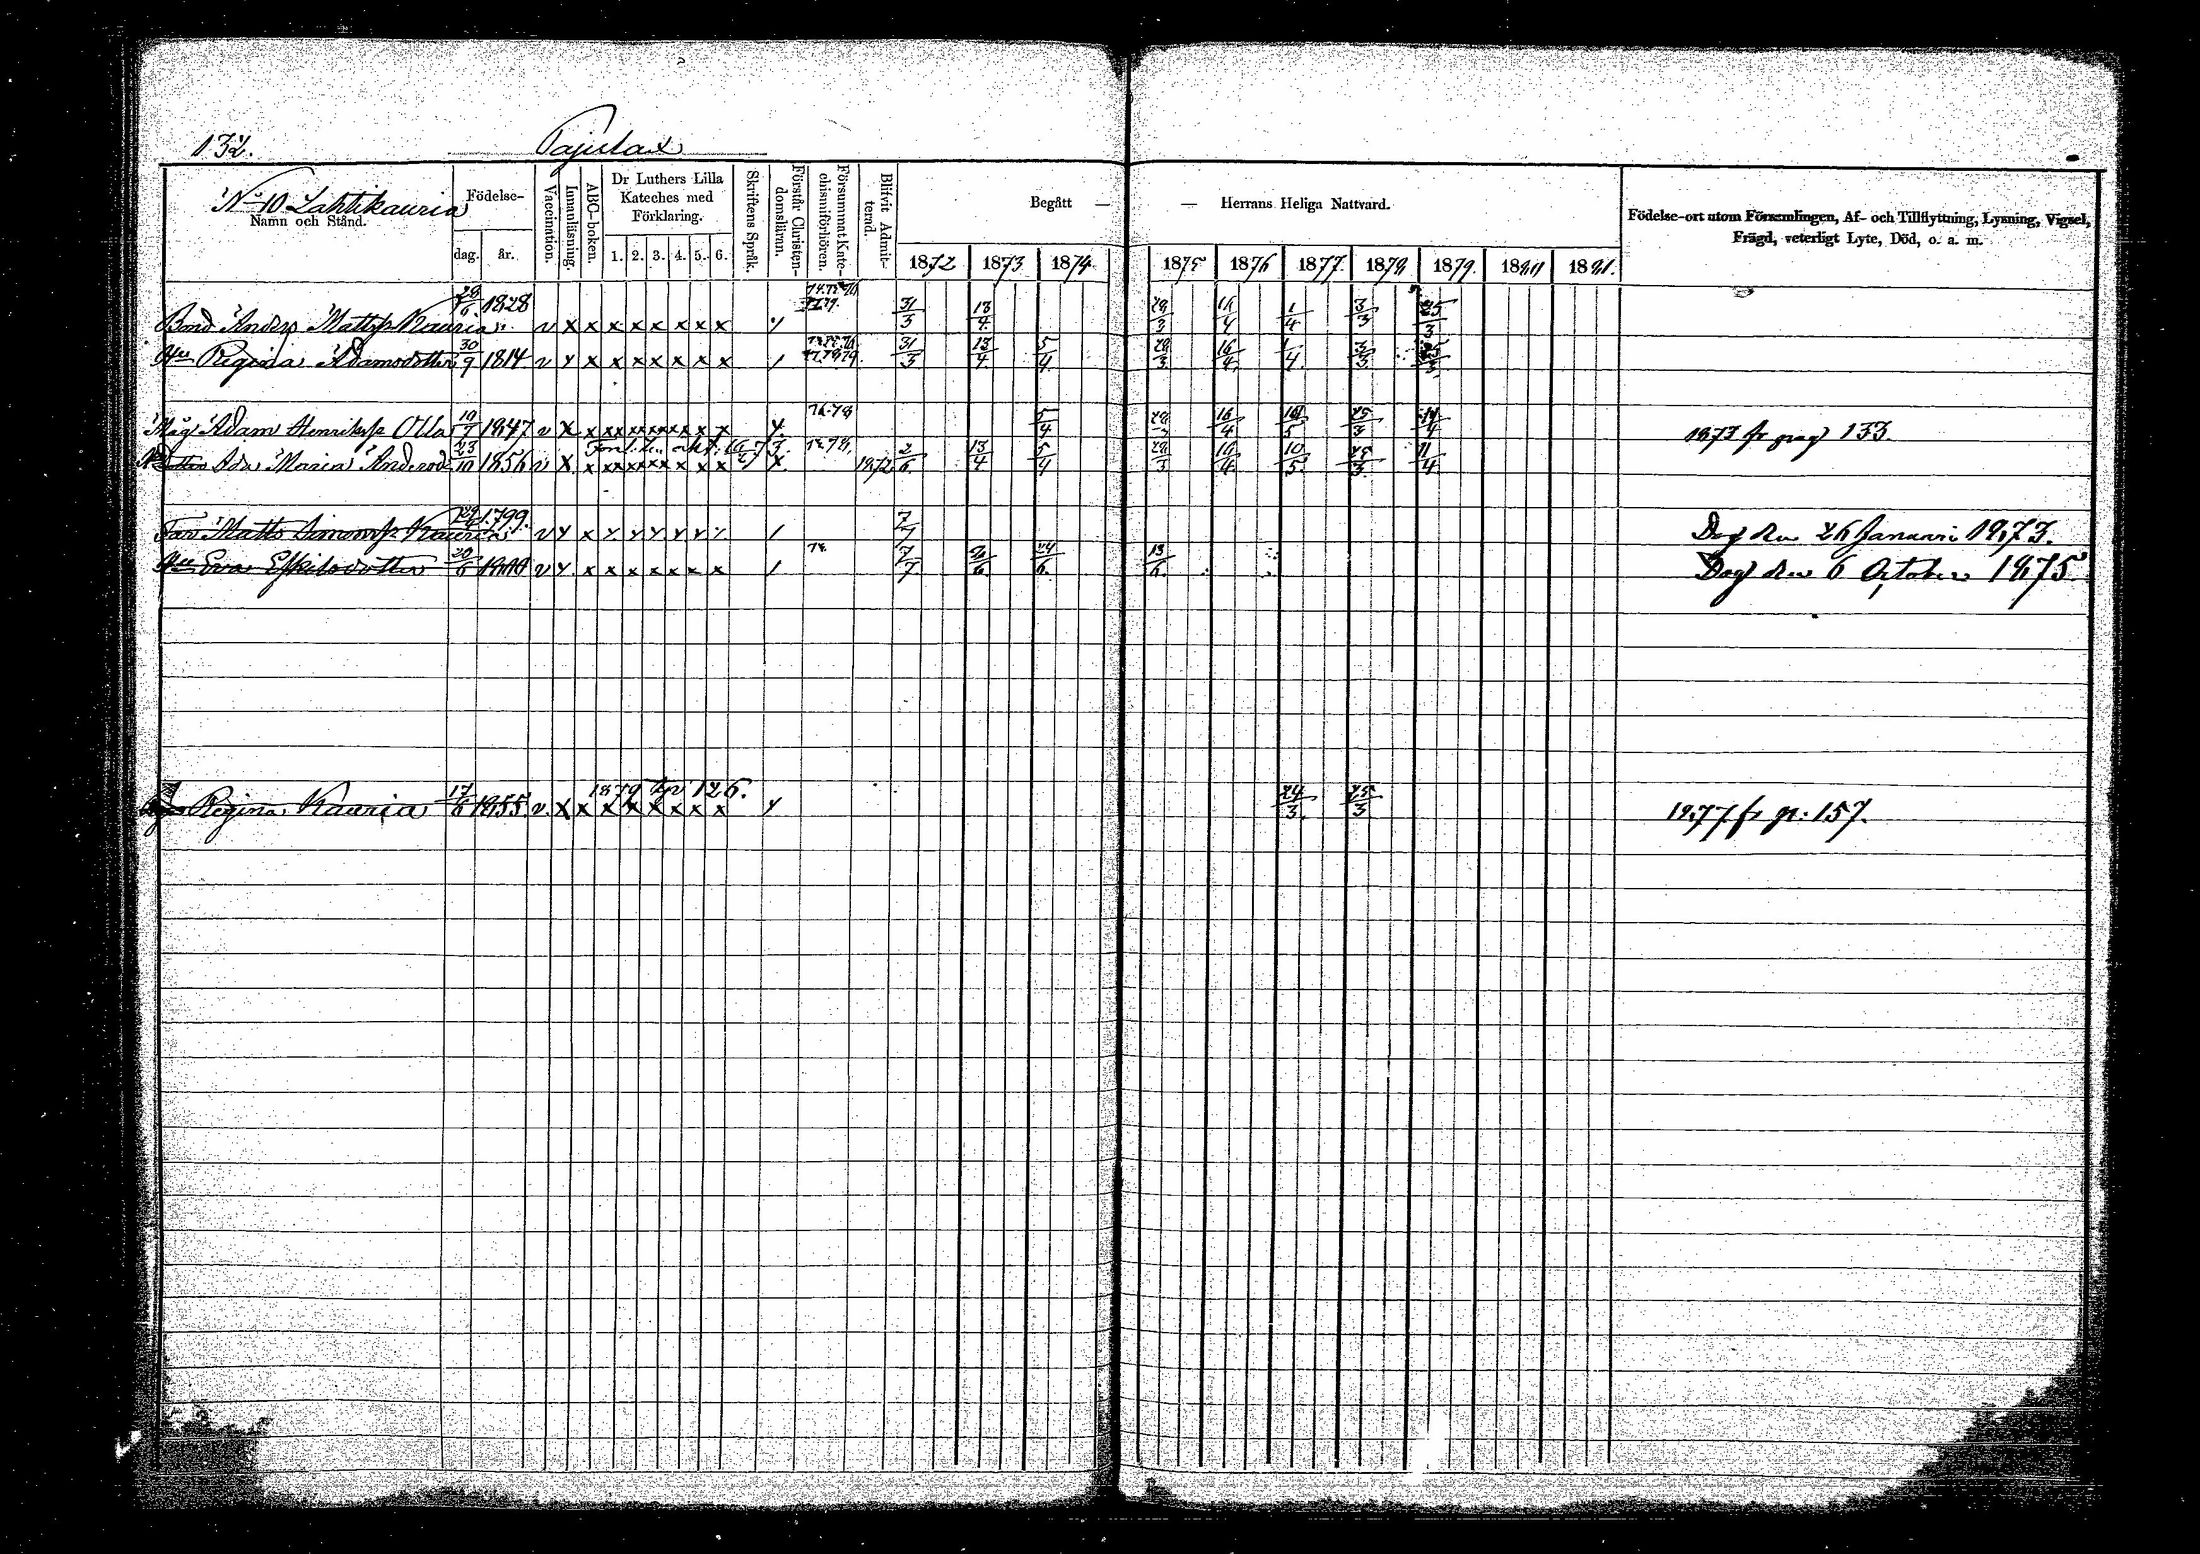 132.
Pajulax
No 10 Lahtikauria
Namn och Stånd.
Födelse-
dag. år.
Vaccination.
Innanläsning.
ABC-boken.
Dr Luthers Lilla
Kateches med
Förklaring.
1. 2. 3. 4. 5. 6.
Skriftens Språk.
Förstår Christen-
domsläran.
Försummat Kate-
chismiförhören.
Blifvit Admit-
terad.
Begått —
— Herrans Heliga Nattvard.
1872 1873 1874
1875 1876 1877 1878 1879. 1880 1881.
Födelse-ort utom Församlingen, Af- och Tillflyttning, Lysning, Vigsel,
Frägd, veterligt Lyte, Död, o. a. m.
Bond Anders Mattsson Kauria 1828 v x x x x x x x x 31/3 13/4 16/4 1/4 3/3 25/3
Hu Regina Adamsdotter 30/9 1814 v x x x x x x x x 31/3 13/4 5/4 16/4 1/4 3/3
Måg Adam Henriksson Olla 10/7 1847 v x x x x x x x x 5/4 16/4 25/3 1873 fr pag 133.
Ada Maria Andersd 23/10 1856 v x x x x x x x x 1872 2/6 13/4 5/4 16/4 10/5 25/3 11/4
Far Matts Simonsson Kauria 1799. v x x 7/7 Dog den 26 Januari 1873.
Hu Eva Eskilsdotter v x x x x x x x x 7/7 13/6 Dog den 6 October 1875
1879 tp 126.
Regina Kauria 17/6 1855. v. x x x x x x x x 24/3 25/3 1877 fr p: 157.